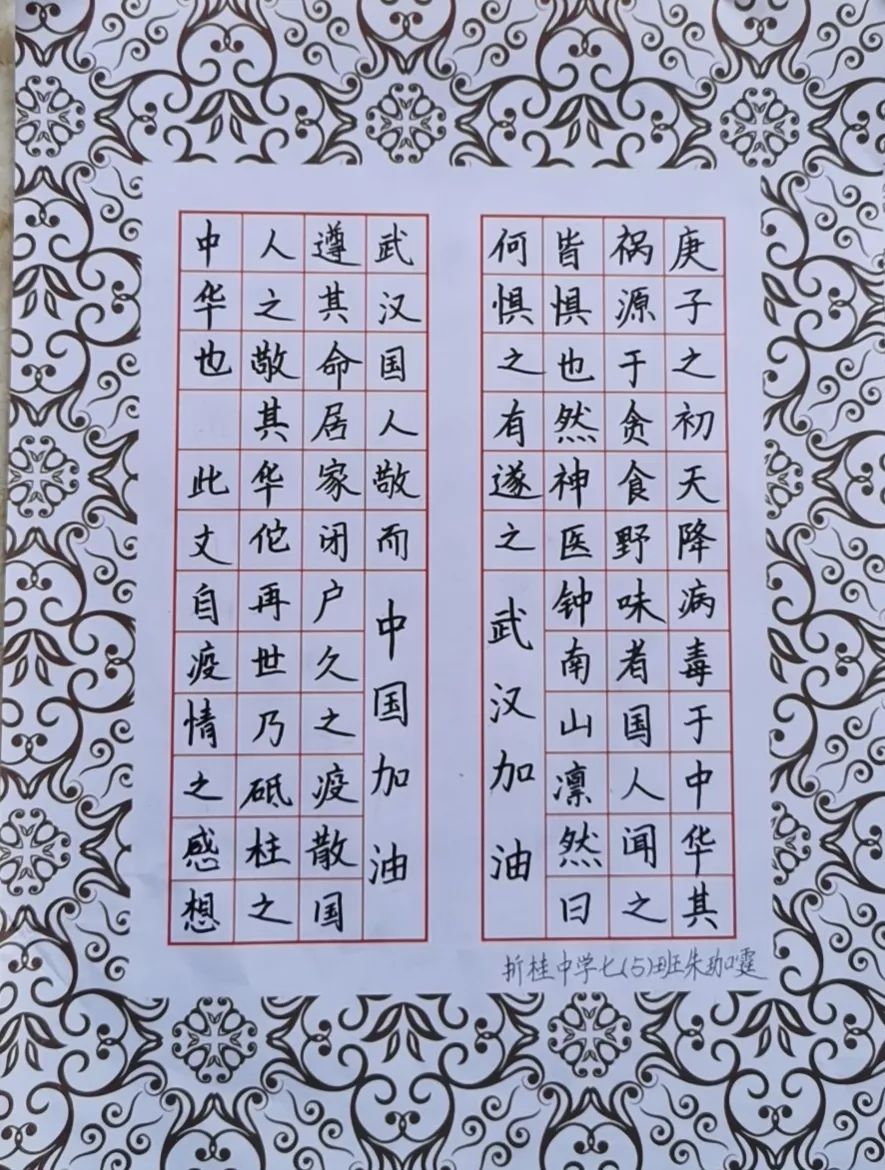 庚子之初天降病毒于中华其
祸源于贪食野味者国人闻之
皆惧也然神医钟南山凛然曰
何惧之有遂之
武汉加油
武汉国人敬而
中国加油
遵其命居家闭户久之疫散国
人之敬其华佗再世乃砥柱之
中华也 此文自疫情之感想
折桂中学七(5)班朱珈霆